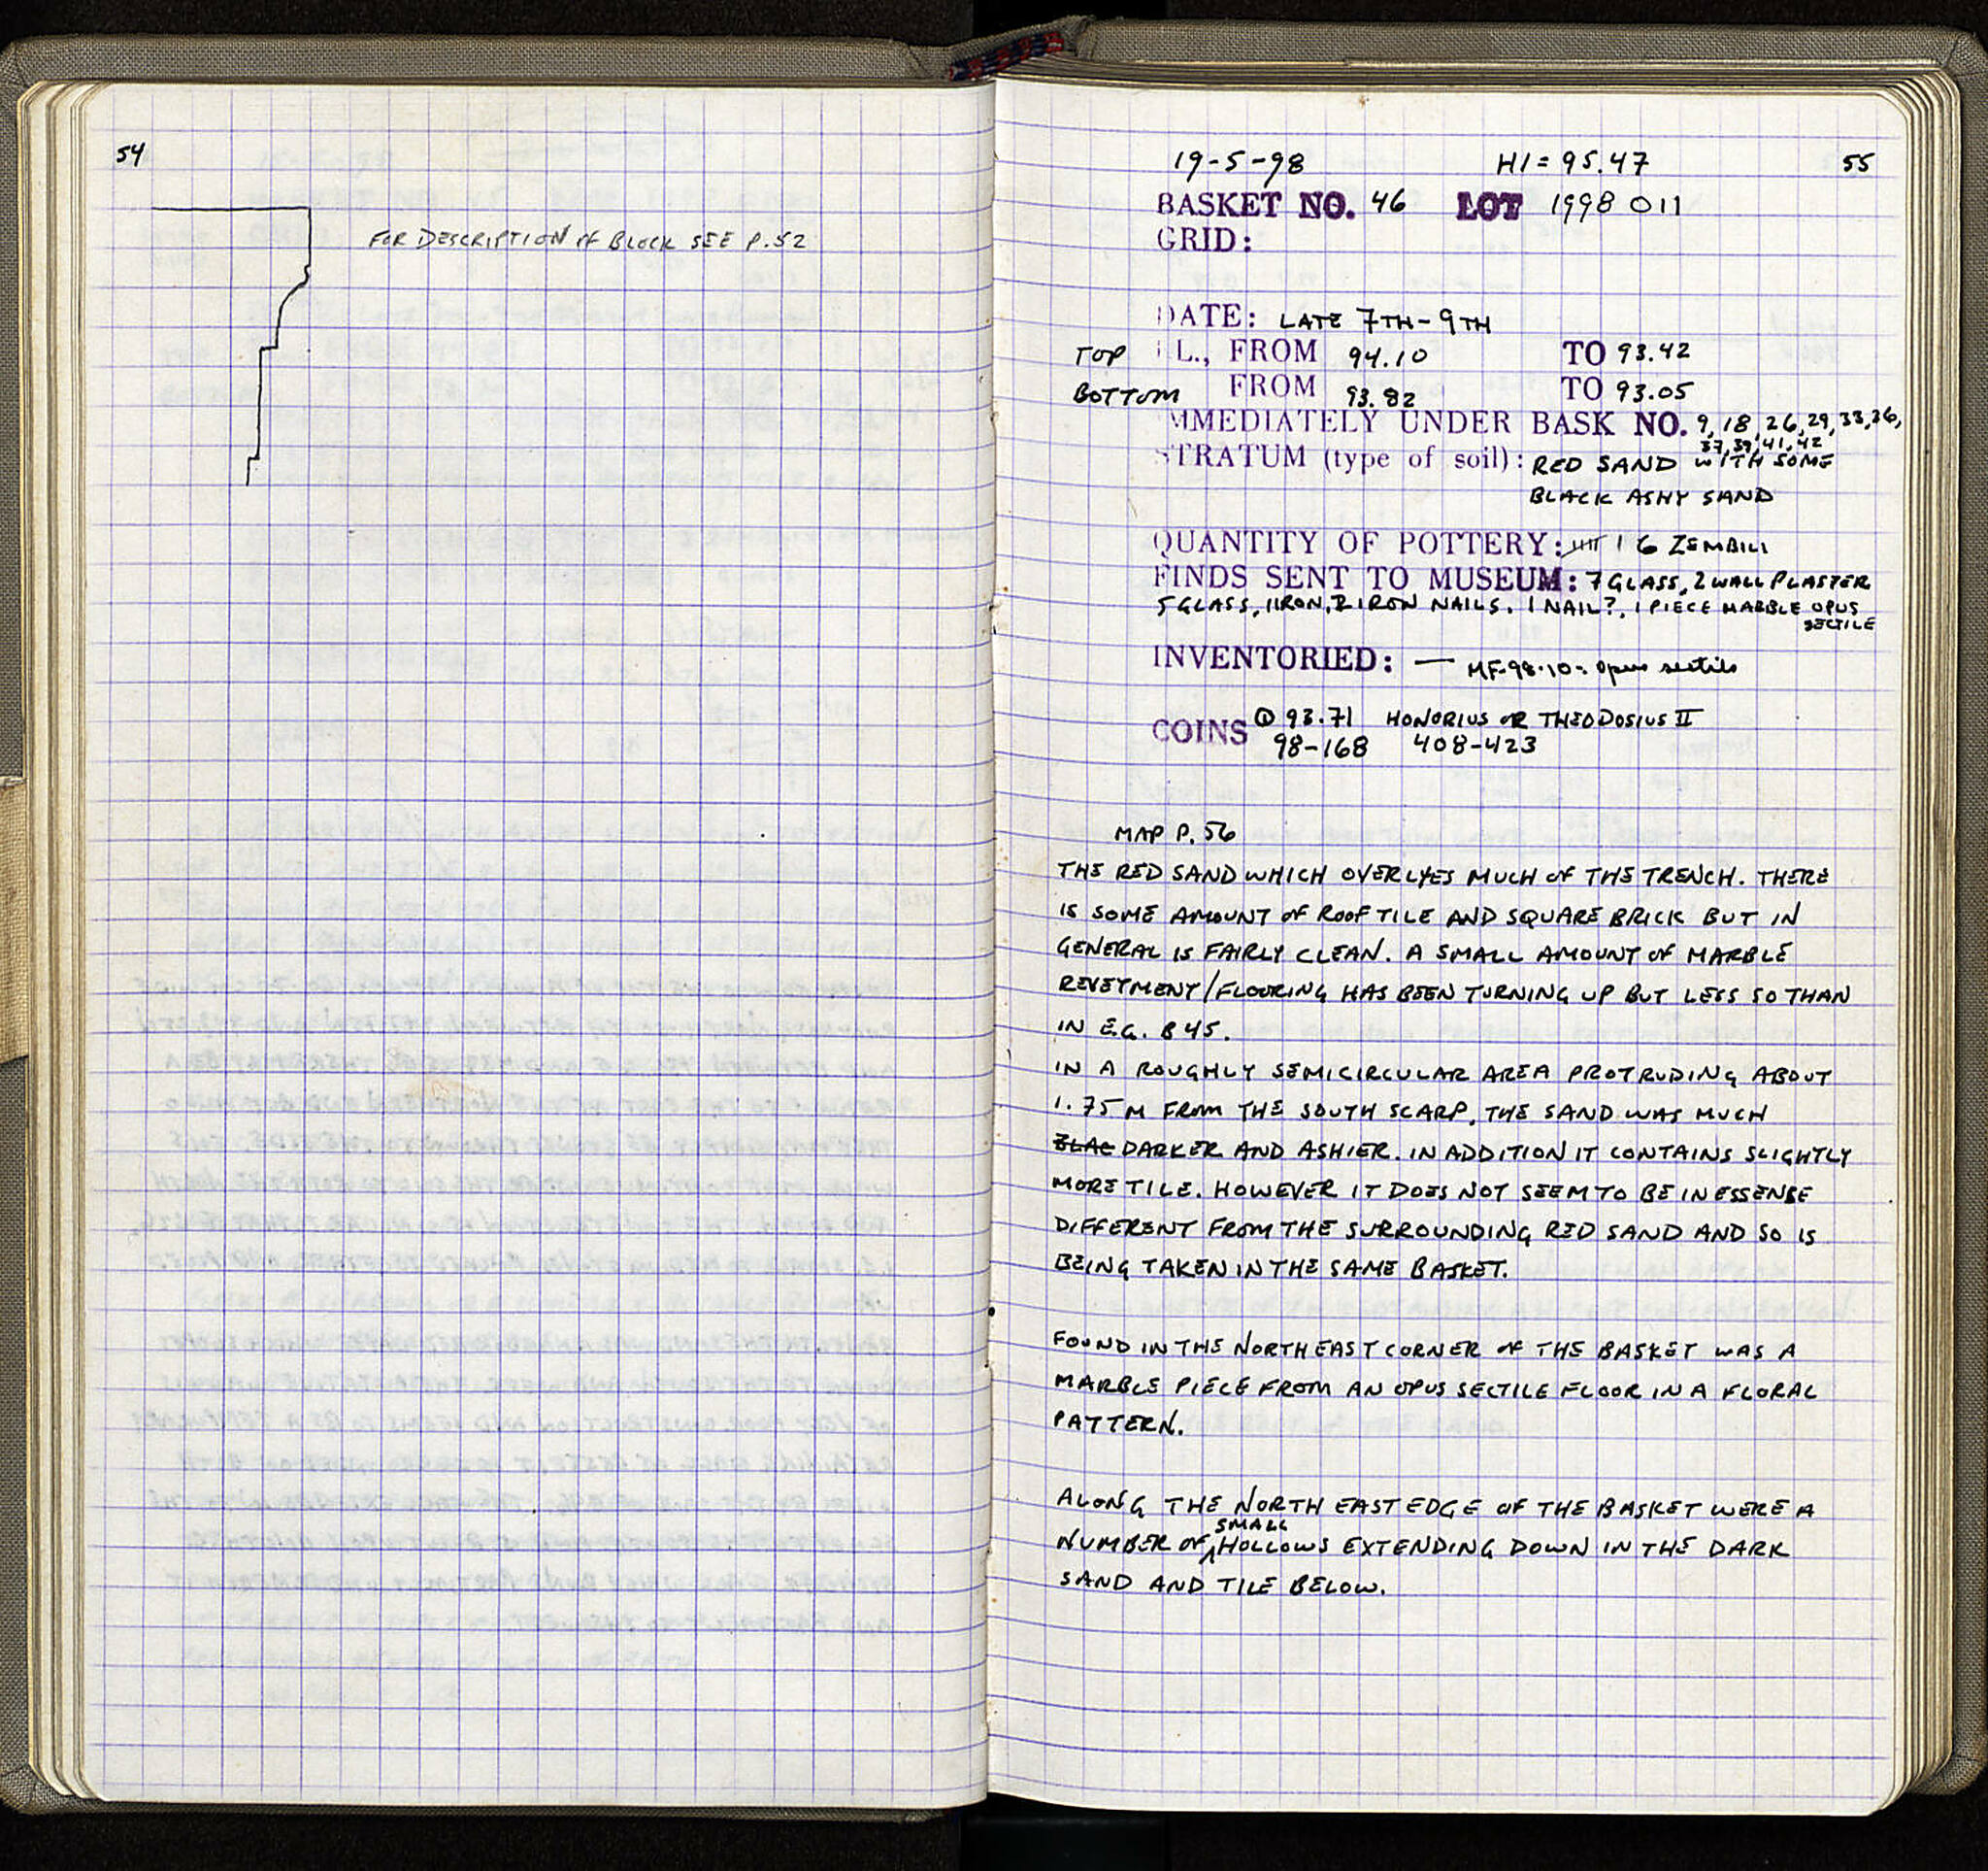 54
FOR DESCRIPTION OF BLOCK SEE P.52
19-5-98 HI=95.47 55
BASKET NO. 46 LOT 1998 011
GRID:
DATE: LATE 7TH-9TH
TOP L., FROM 94.10 TO 93.42
BOTTOM FROM 93.82 TO 93.05
MMEDIATELY UNDER BASK NO. 9,18,26,29,33,36,
37,39,41,42
STRATUM (type of soil): RED SAND WITH SOME
BLACK ASHY SAND
QUANTITY OF POTTERY: 6 ZEMBILI
FINDS SENT TO MUSEUM: 7 GLASS, 2 WALL PLASTER
5 GLASS, 1 IRON, 2 IRON NAILS. 1 NAIL?, 1 PIECE MARBLE OPUS
SECTILE
INVENTORIED: — MF-98-10 = opus sectile
COINS ① 93.71 HONORIUS OR THEODOSIUS II
98-168 408-423
MAP P.56
THE RED SAND WHICH OVERLYES MUCH OF THE TRENCH. THERE
IS SOME AMOUNT OF ROOF TILE AND SQUARE BRICK BUT IN
GENERAL IS FAIRLY CLEAN. A SMALL AMOUNT OF MARBLE
REVETMENT/FLOORING HAS BEEN TURNING UP BUT LESS SO THAN
IN E.G. B 45.
IN A ROUGHLY SEMICIRCULAR AREA PROTRUDING ABOUT
1.75 M FROM THE SOUTH SCARP, THE SAND WAS MUCH
BLAC DARKER AND ASHIER. IN ADDITION IT CONTAINS SLIGHTLY
MORE TILE. HOWEVER IT DOES NOT SEEM TO BE IN ESSENSE
DIFFERENT FROM THE SURROUNDING RED SAND AND SO IS
BEING TAKEN IN THE SAME BASKET.
FOUND IN THE NORTH EAST CORNER OF THE BASKET WAS A
MARBLE PIECE FROM AN OPUS SECTILE FLOOR IN A FLORAL
PATTERN.
ALONG THE NORTH EAST EDGE OF THE BASKET WERE A
NUMBER OF SMALL HOLLOWS EXTENDING DOWN IN THE DARK
SAND AND TILE BELOW.